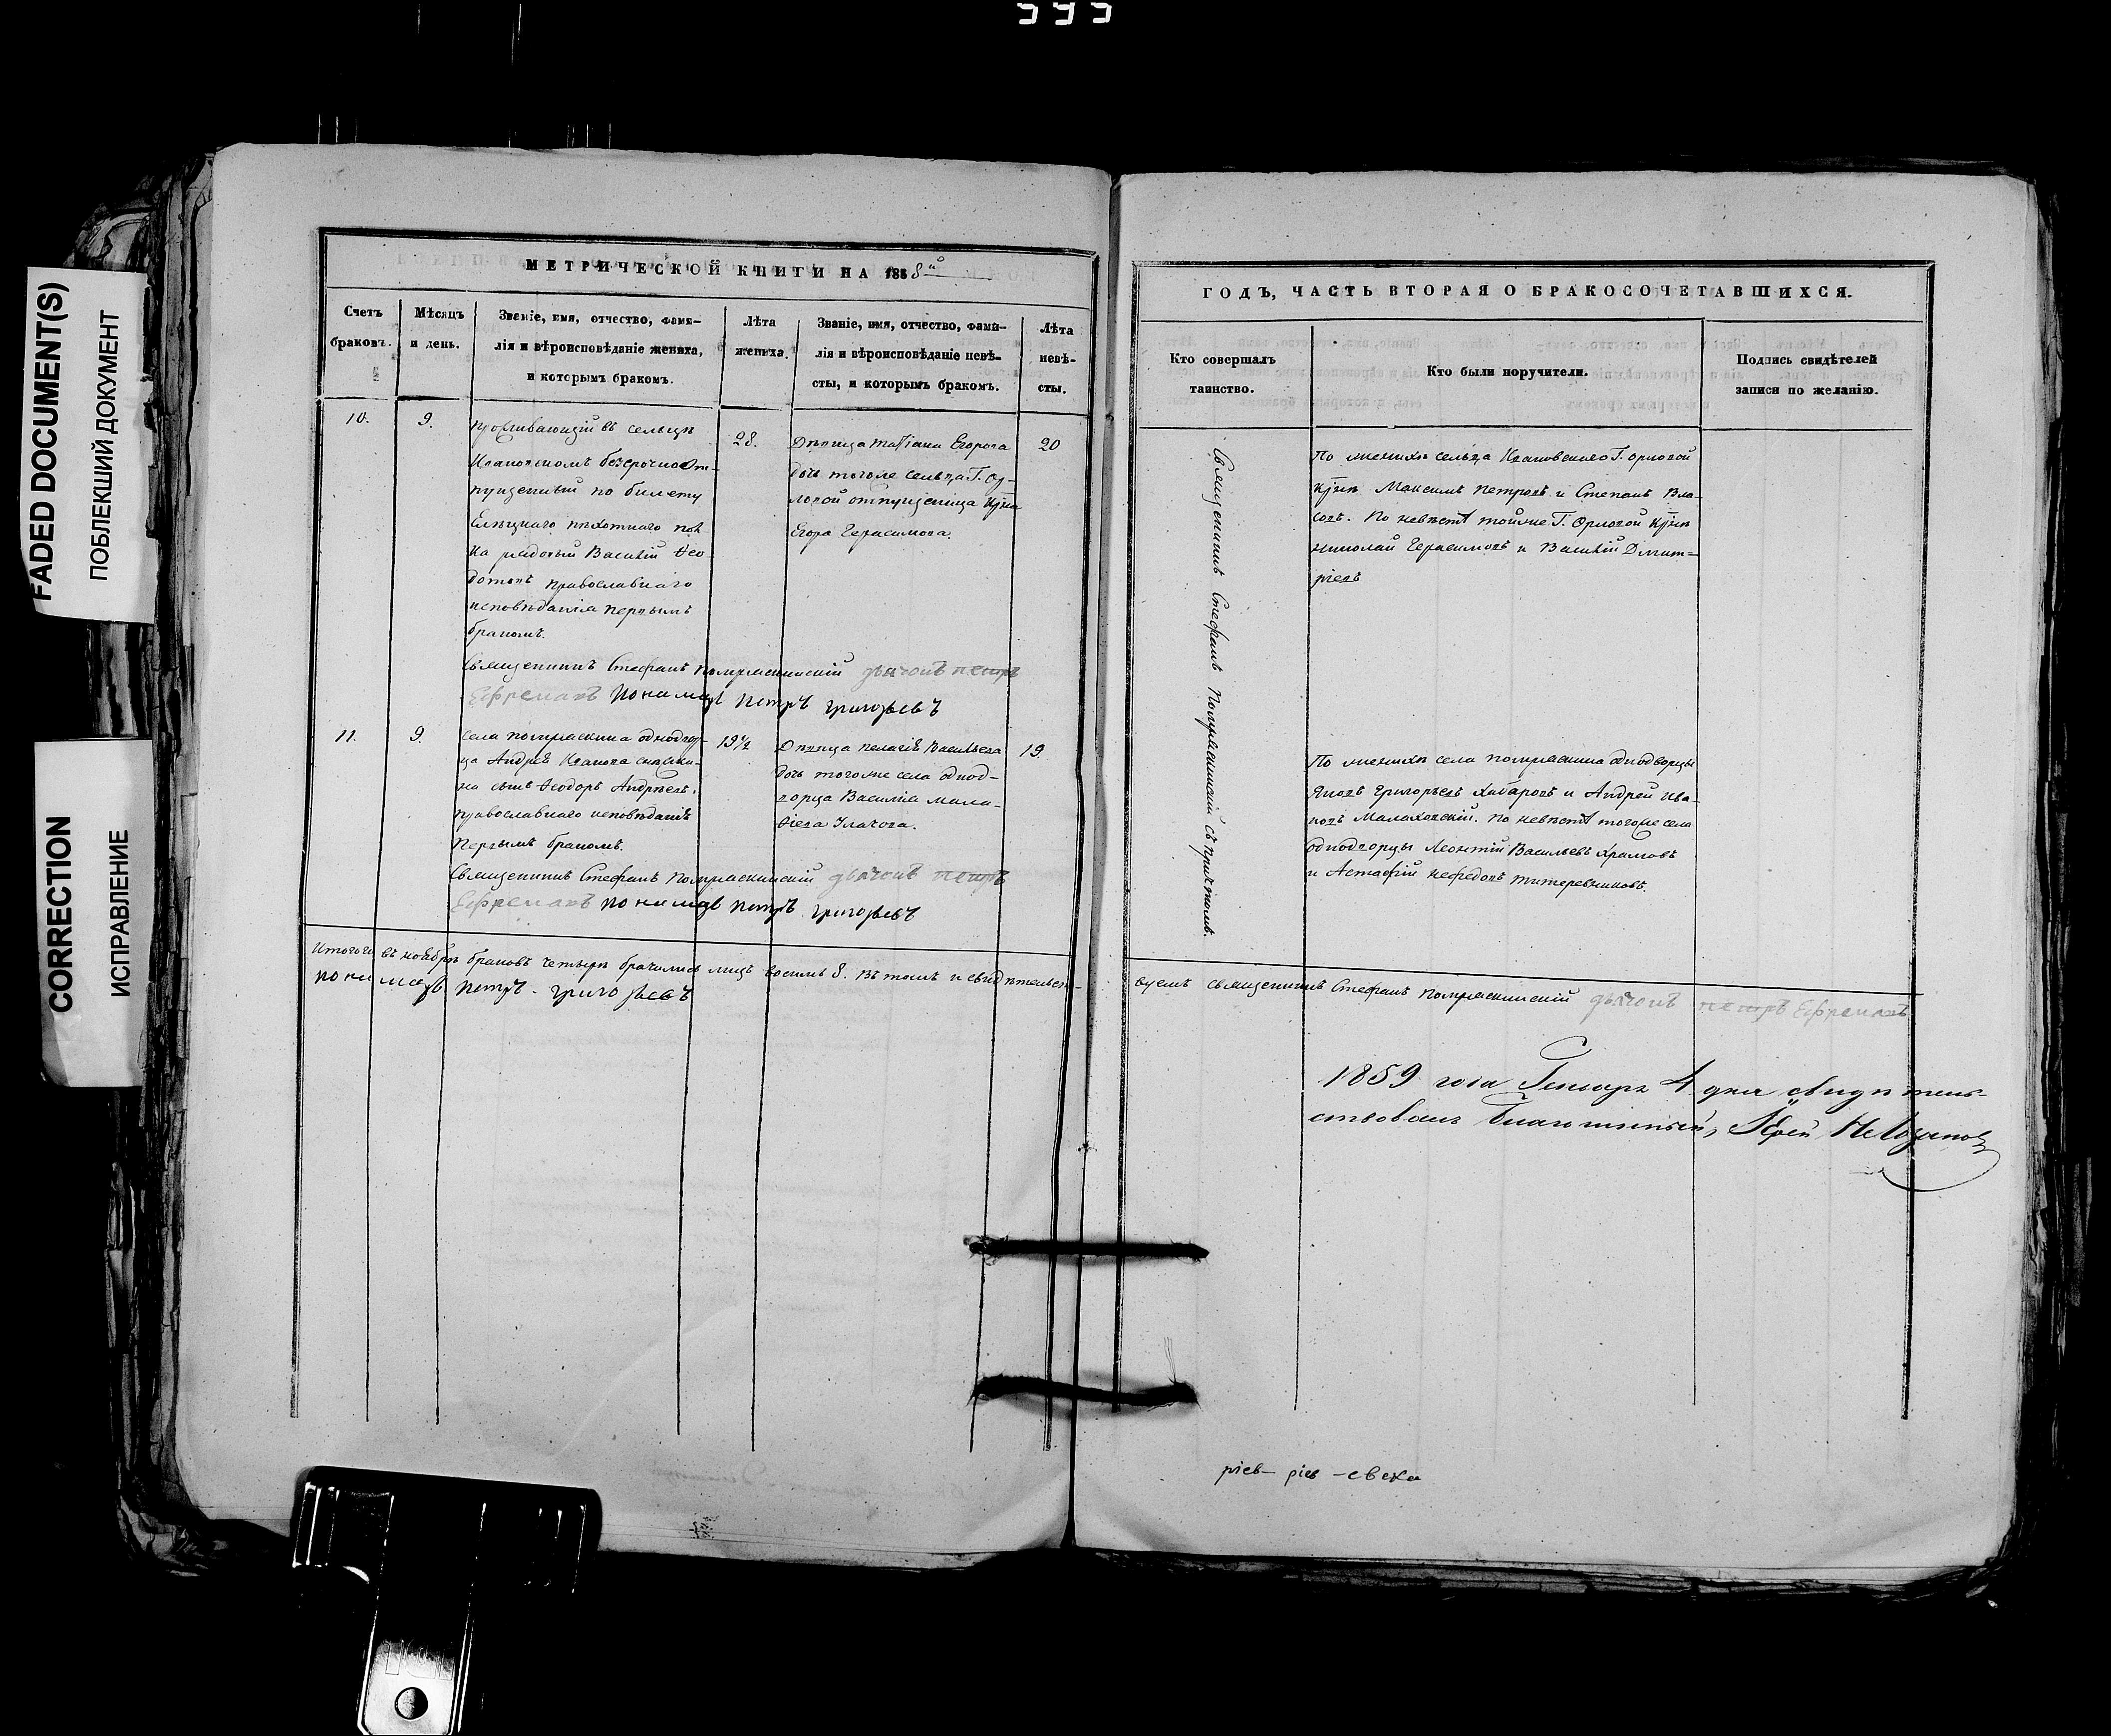 595
FADED DOCUMENT(S)
ПОБЛЕКШИЙ ДОКУМЕНТ
CORRECTION
ИСПРАВЛЕНИЕ
МЕТРИЧЕСКОЙ КНИГИ НА 1858й
Счетъ браковъ.
Мѣсяцъ и день.
Званіе, имя, отчество, фами-
лія и вѣроисповѣданіе жениха,
и которымъ бракомъ.
Лѣта
жениха.
Званіе, имя, отчество, фами-
лія и вѣроисповѣданіе невѣ-
сты, и которымъ бракомъ.
Лѣта
невѣ-
сты.
10.
9.
проживающій въ сельцѣ
безсрочно от-
пущенный по билету
Елецкаго пѣхотнаго пол
ка рядовый Василій Ѳео
дотовъ православнаго
исповѣданія первымъ
бракомъ.
28.
Дѣвица Татіана Егорова
дочь тогоже сельца Г. Ор-
ловой отпущеница
Егора Герасимова.
20
Священникъ Стефанъ дьячокъ петръ
Ефремовъ пономарь петръ григорьевъ
11.
9.
села однодвор-
ца Андрея Иванова
на сынъ Ѳеодоръ Андреевъ.
православнаго исповѣданія
первымъ бракомъ.
19½
Дѣвица пелагія Васильева
дочь тогоже села однод-
ворца Василія Мала-
ѳіева
19.
Священникъ Стефанъ дьячокъ петръ
Ефремовъ пономарь петръ григорьевъ
Итого въ ноябрѣ браковъ четыре брачились лицъ восемь 8. Въ томъ и свидѣтельст-
пономарь петръ григорьевъ
ГОДЪ, ЧАСТЬ ВТОРАЯ О БРАКОСОЧЕТАВШИХСЯ.
Кто совершалъ
таинство.
Кто были поручители.
Подпись свидѣтелей
записи по желанію.
Священникъ Стефанъ съ причтомъ.
По женихѣ сельца Г. Орловой
Максимъ Петровъ и Степанъ Вла-
совъ. По невѣстѣ тойже Г. Орловой
Николай Герасимовъ и Василій Дмит-
ріевъ
По женихѣ села однодворцы
Яковъ Григорьевъ Хабаровъ и Андрей Ива-
новъ Малаховскій. по невѣстѣ тогоже села
однодворцы Леонтій Васильевъ Храмовъ
и Астафій Нефедовъ
вуемъ священникъ Стефанъ дьячокъ петръ Ефремовъ
1859 года Генваря 4 дня свидѣтель-
ствовалъ Благочинный, Іерей
ріев— ріев —евска